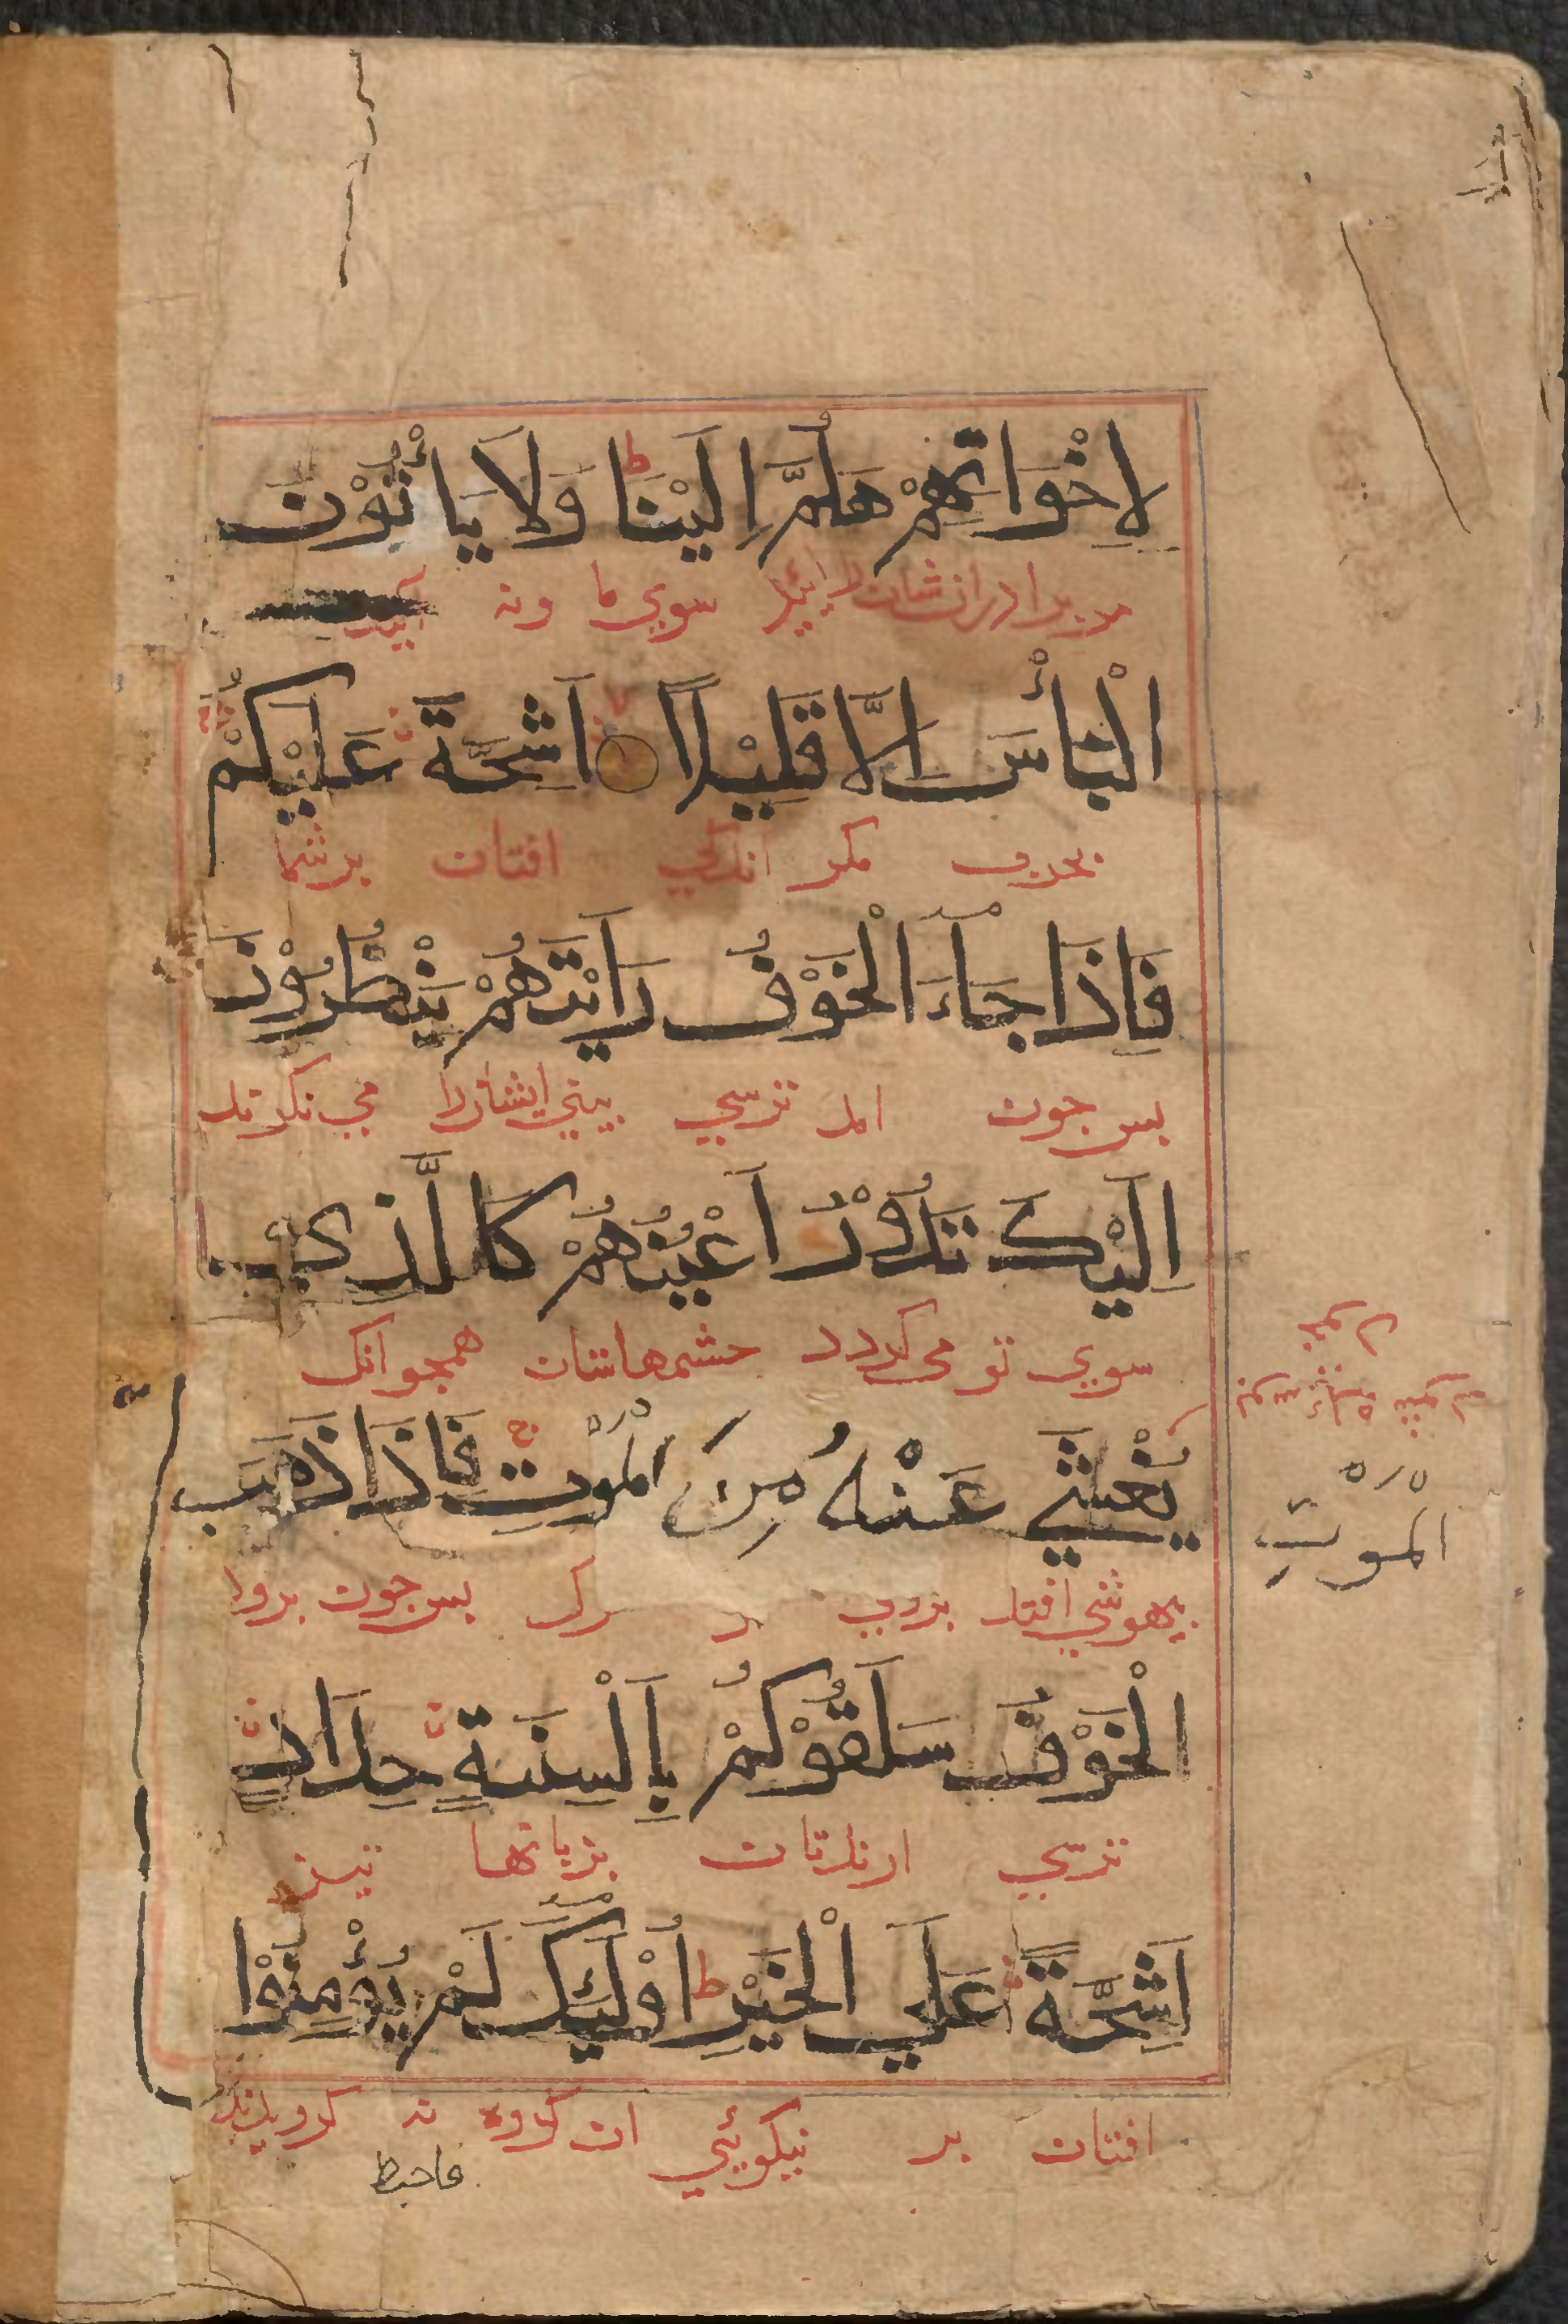 لِاِخْوَانِهِمْ هَلُمَّ اِلَيْنَا ط وَلَا يَأْتُوْنَ
مر برادرانشان را بیائید سوي ما ونه آیند
الْبَأْسَ اِلَّا قَلِيْلًا ○ اَشِحَّةً عَلَيْكُمْ
بحرب مکر اندکي افتان برشما
فَاِذَا جَاءَ الْخَوْفُ رَاَيْتَهُمْ يَنْظُرُوْنَ
بس جون امد ترسي بيني ایشانرا مي نکرند
اِلَيْكَ تَدُوْرُ اَعْيُنُهُمْ كَالَّذِي
سوي تو می کردد حشمهاشان همجو انک
يُغْشٰي عَنْهُ مِنَ الْمَوْتِ ج فَاِذَا ذَهَبَ
بیهوشي افتد بروي مرك بس جون برود
الْمَوْتِ
الْخَوْفُ سَلَقُوْكُمْ بِاَلْسِنَةٍ حِدَادٍ
ترسي بزبانها تیز
اَشِحَّةً عَلَي الْخَيْرِ ط اُولٰئِكَ لَمْ يُؤْمِنُوْا
افتان بر نیکوئي ان کروه نه کرویدند
فاحبط